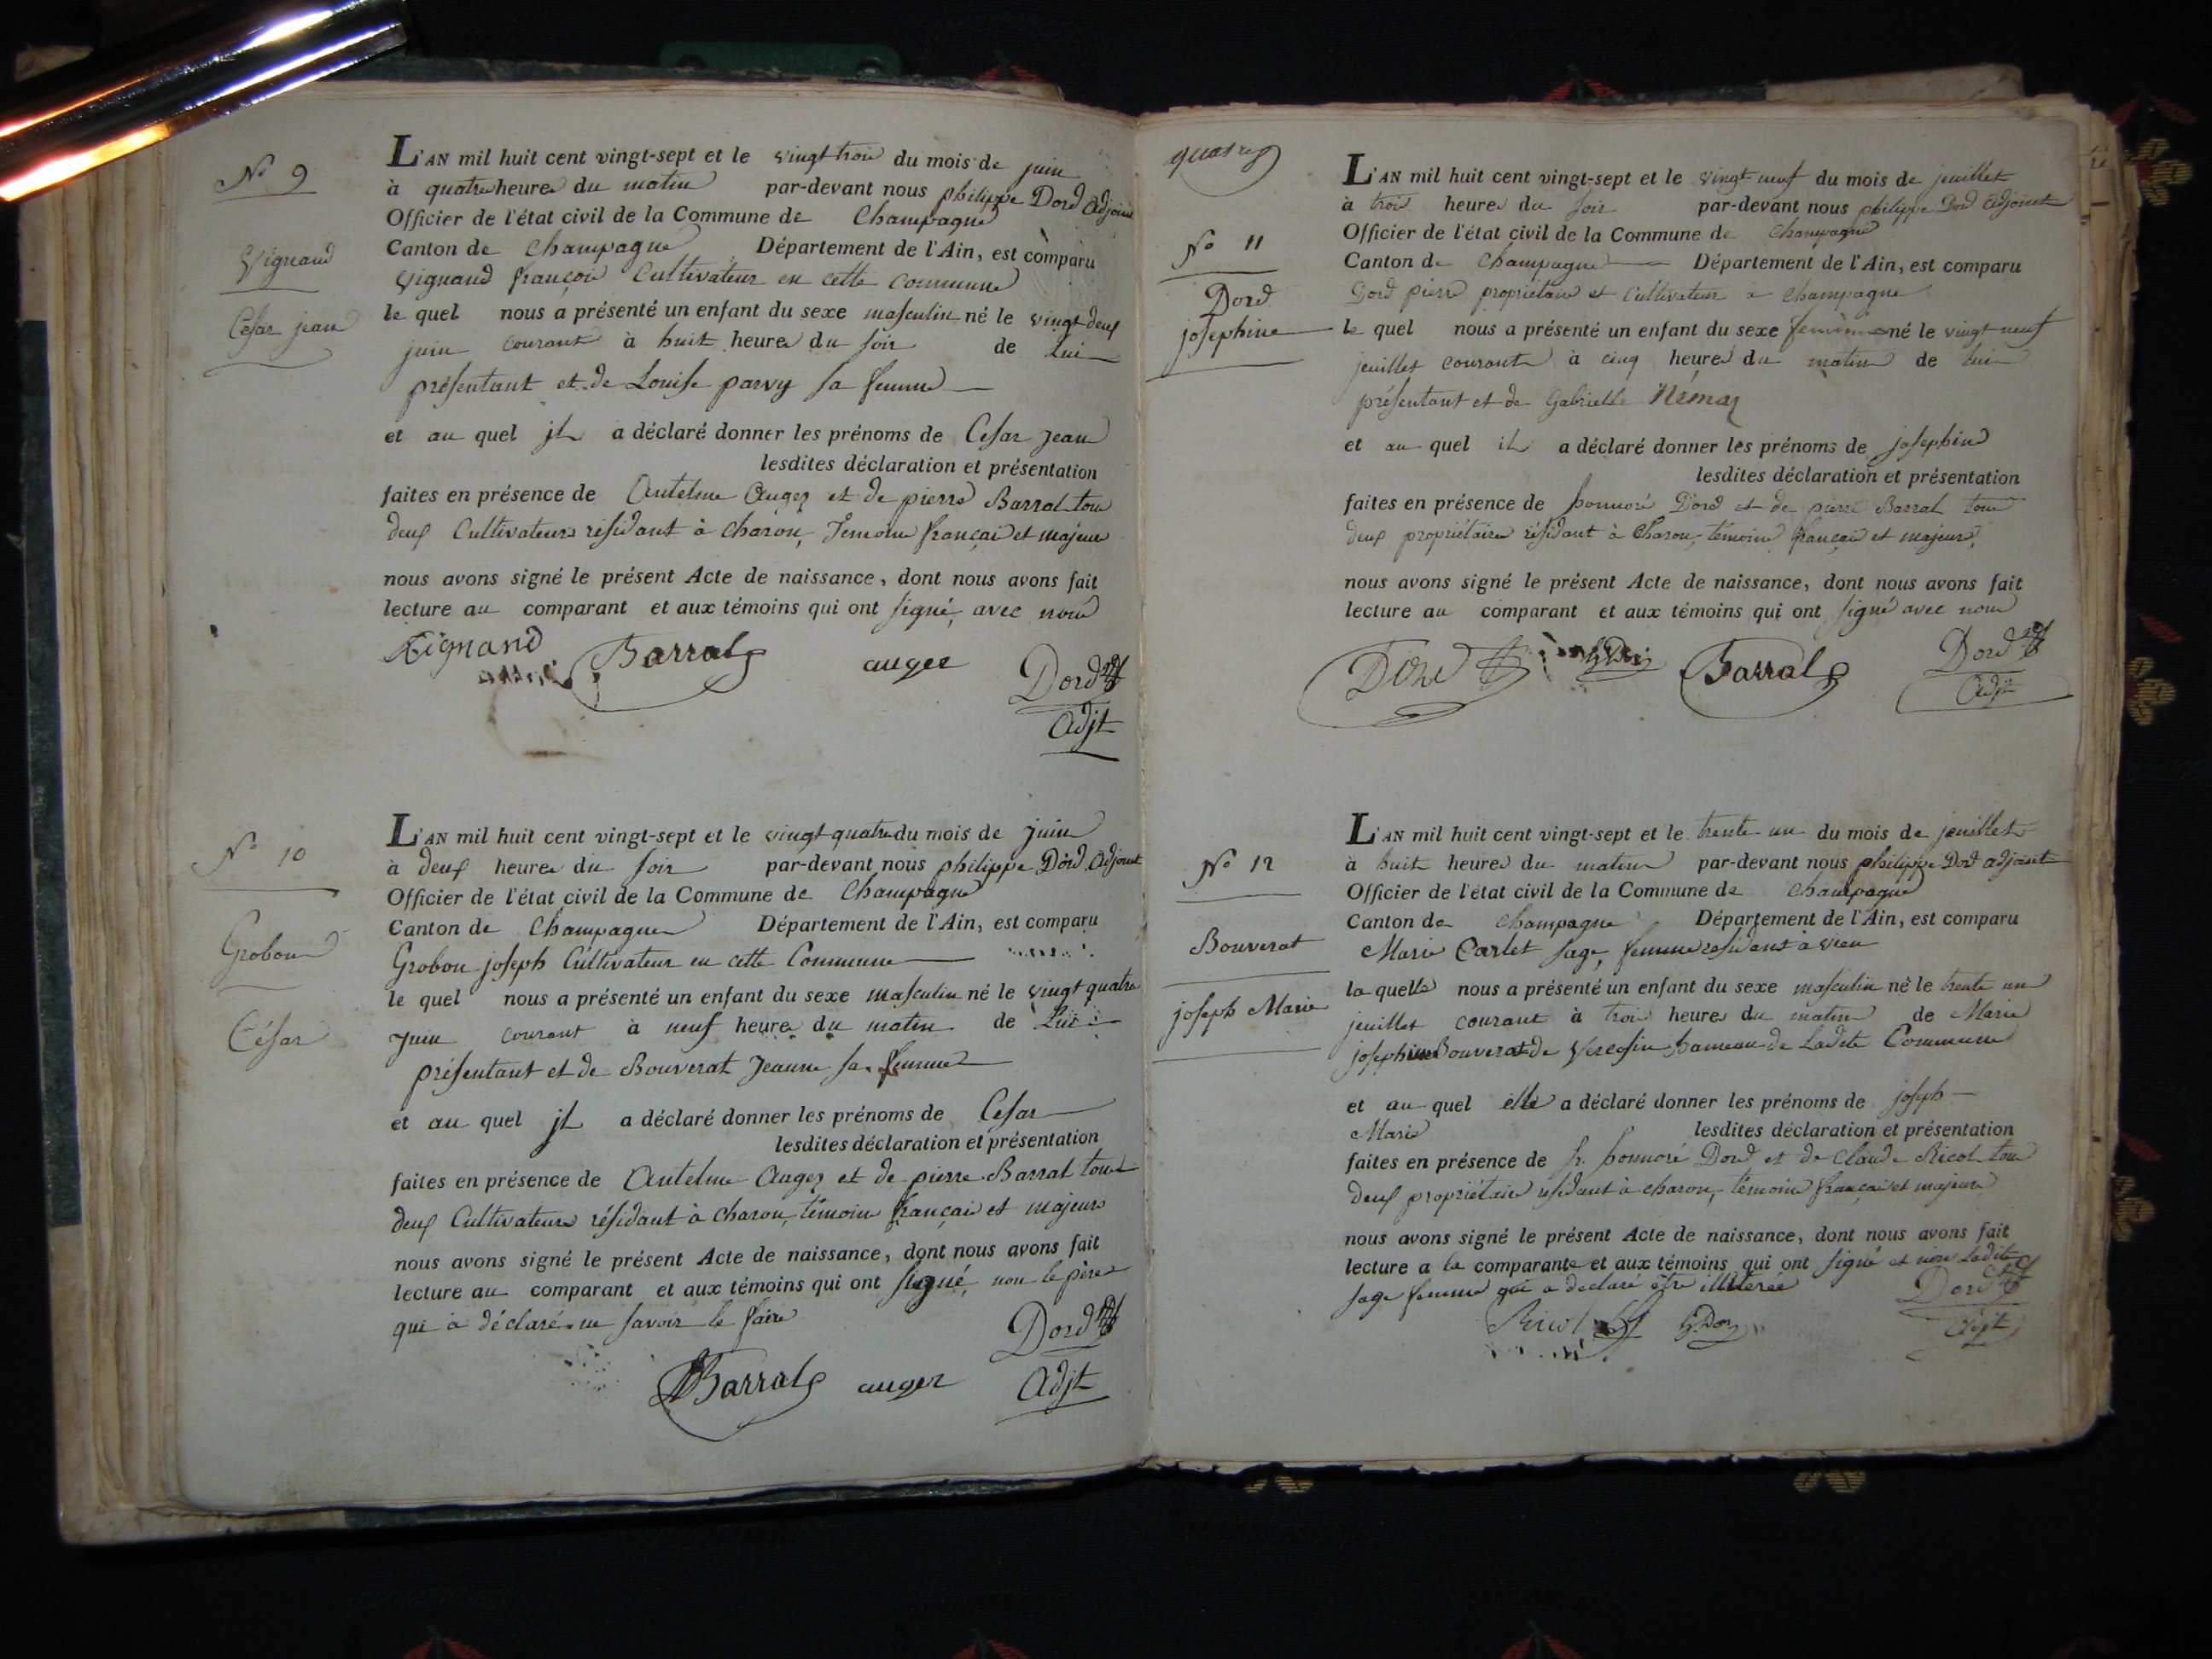 N° 9
Vignand
César jean
L'AN mil huit cent vingt-sept et le vingt trois du mois de juin
à quatre heures du matin par-devant nous philippe Dord adjoint
Officier de l'état civil de la Commune de Champagne
Canton de Champagne Département de l'Ain, est comparu
Vignand françois Cultivateur en cette commune
le quel nous a présenté un enfant du sexe masculin né le vingt deux
juin courant à huit heures du soir de Lui
présentant et de Louise parvy sa femme
et au quel il a déclaré donner les prénoms de Cesar Jean
lesdites déclaration et présentation
faites en présence de Antelme Auger et de pierre Barral tous
deux Cultivateurs résidant à charon, Temoins français et majeurs
nous avons signé le présent Acte de naissance, dont nous avons fait
lecture au comparant et aux témoins qui ont signé, avec nous
Vignand Barral auger Dord
Adjt
N° 10
Grobon
César
L'AN mil huit cent vingt-sept et le vingt quatre du mois de juin
à deux heures du soir par-devant nous philippe Dord Adjoint
Officier de l'état civil de la Commune de Champagne
Canton de Champagne Département de l'Ain, est comparu
Grobon joseph Cultivateur en cette Commune
le quel nous a présenté un enfant du sexe masculin né le vingt quatre
Juin courant à neuf heures du matin de Lui
présentant et de Bouverat Jeanne sa femme
et au quel il a déclaré donner les prénoms de Cesar
lesdites déclaration et présentation
faites en présence de Antelme Auger et de pierre Barral tous
deux Cultivateurs résidant à charon, témoins français et majeurs
nous avons signé le présent Acte de naissance, dont nous avons fait
lecture au comparant et aux témoins qui ont signé, non le père
qui à déclaré ne savoir le faire
Barral auger Dord
Adjt
N° 11
Dord
josephine
L'AN mil huit cent vingt-sept et le vingt neuf du mois de jeuillet
à trois heures du soir par-devant nous philippe Dord adjoint
Officier de l'état civil de la Commune de Champagne
Canton de Champagne Département de l'Ain, est comparu
Dord pierre propriétaire et Cultivateur a Champagne
le quel nous a présenté un enfant du sexe feminin né le vingt neuf
jeuillet courant à cinq heures du matin de lui
présentant et de Gabrielle
et au quel il a déclaré donner les prénoms de josephine
lesdites déclaration et présentation
faites en présence de honnoré Dord et de pierre Barral tous
deux propriétaires résidant à Charon, témoins français et majeurs,
nous avons signé le présent Acte de naissance, dont nous avons fait
lecture au comparant et aux témoins qui ont signé avec nous
Dord Barral Dord
Adjt
N° 12
Bouverat
joseph Marie
L'AN mil huit cent vingt-sept et le trente un du mois de jeuillet
à huit heures du matin par-devant nous philippe Dord adjoint
Officier de l'état civil de la Commune de Champagne
Canton de Champagne Département de l'Ain, est comparu
Marie Carlet sage, femme residant à vieu
la quelle nous a présenté un enfant du sexe masculin né le trente un
jeuillet courant à trois heures du matin de Marie
josephine Bouverat de Verossin hameau de Ladite Commune
et au quel elle a déclaré donner les prénoms de joseph
Marie lesdites déclaration et présentation
faites en présence de honnoré Dord et de Claude Ricol tous
deux propriétaires résidant à charon, témoins français et majeurs
nous avons signé le présent Acte de naissance, dont nous avons fait
lecture a la comparante et aux témoins qui ont signé et non ladite
sage femme qui a declaré être illiterée
Ricol h. Dord Dord
Adjt